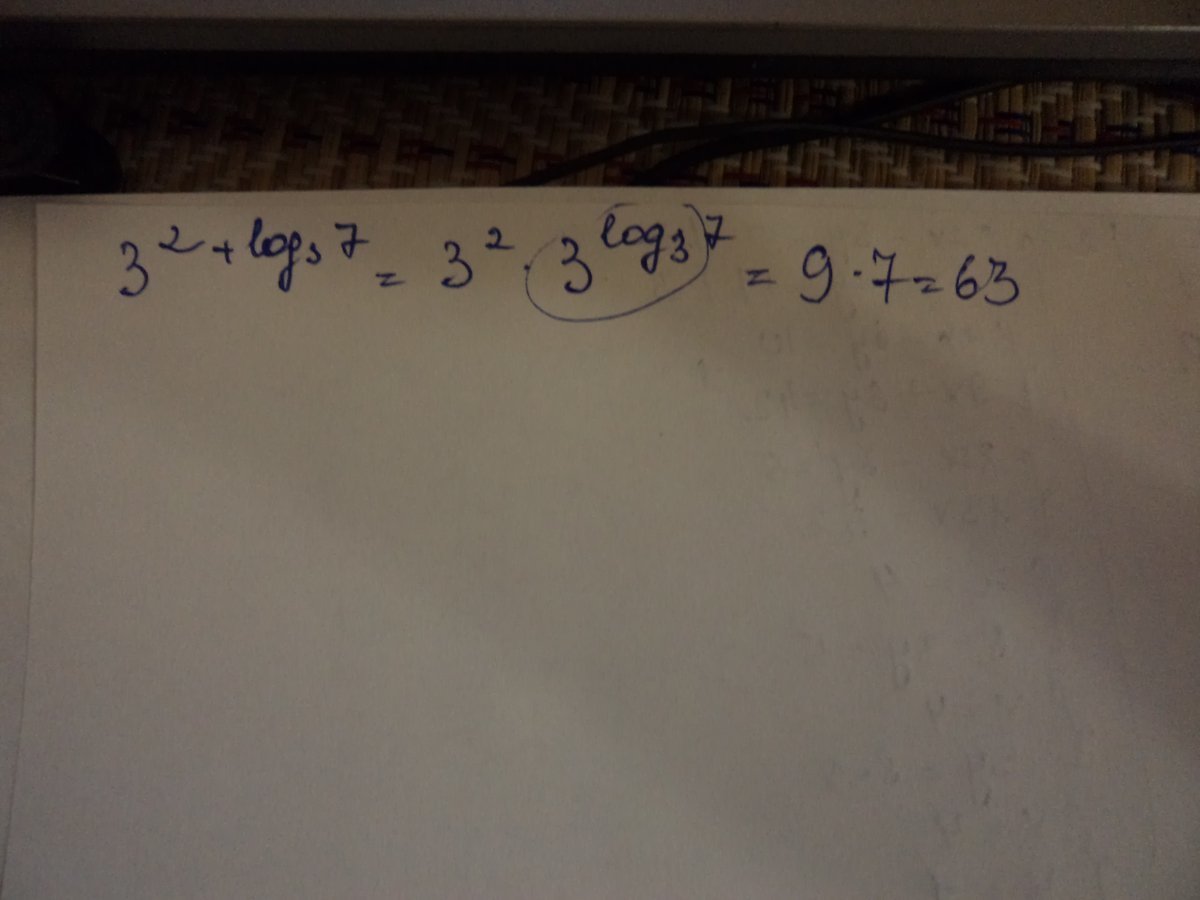 3^{2 + log_3 7} = 3^2 · 3^{log_3 7} = 9 · 7 = 63